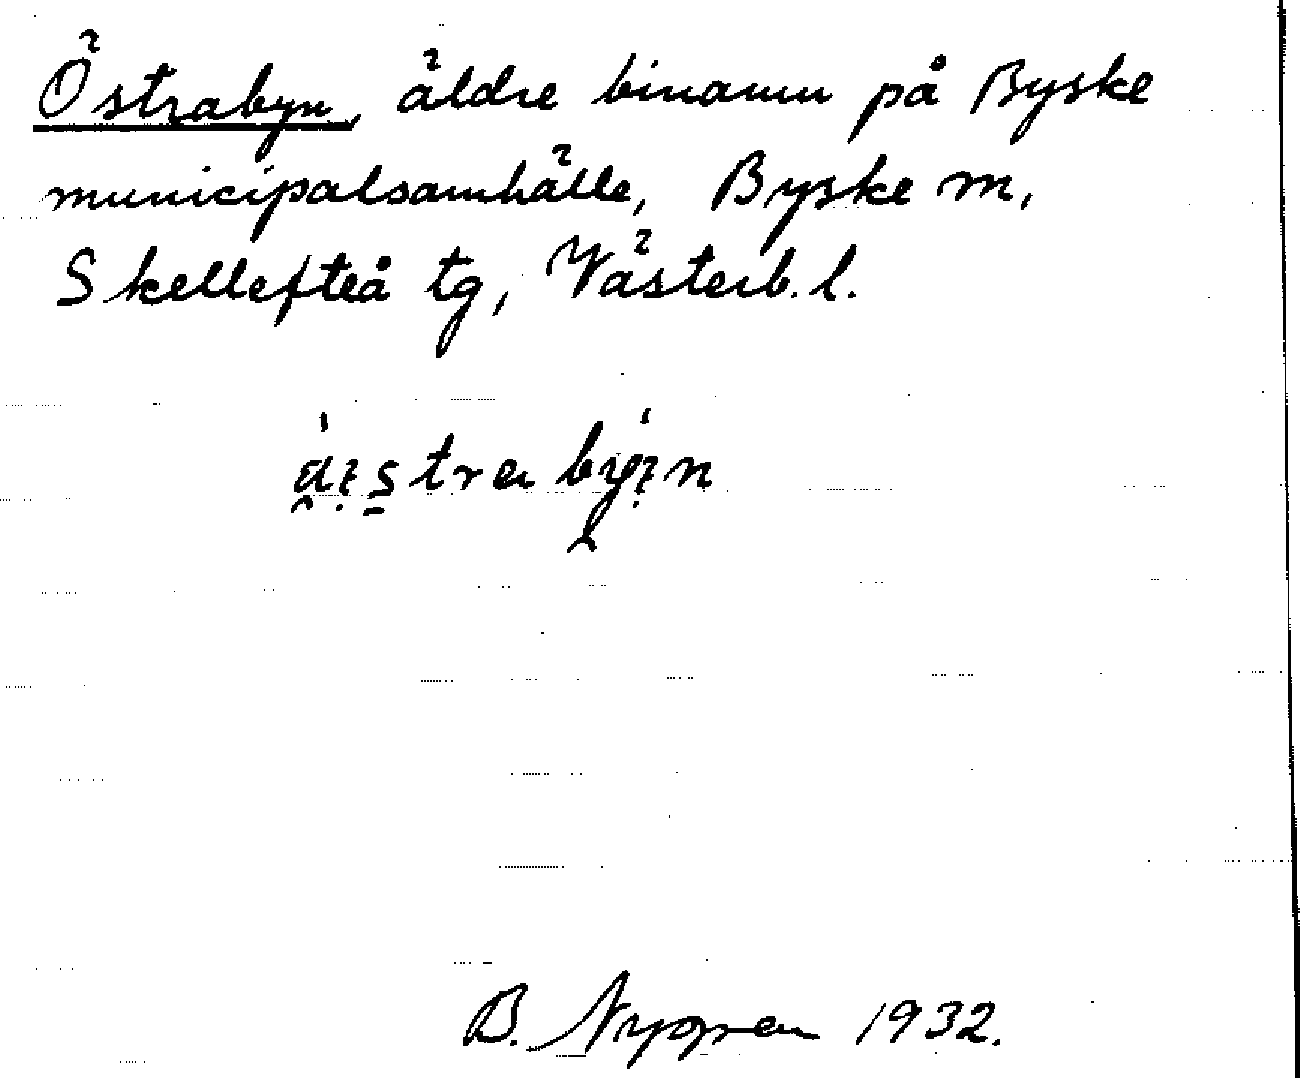 Östrabyn, äldre binamn på Byske
municipalsamhälle, Byske m,
Skellefteå tg, Västerb. l.
B. Nygren 1932.